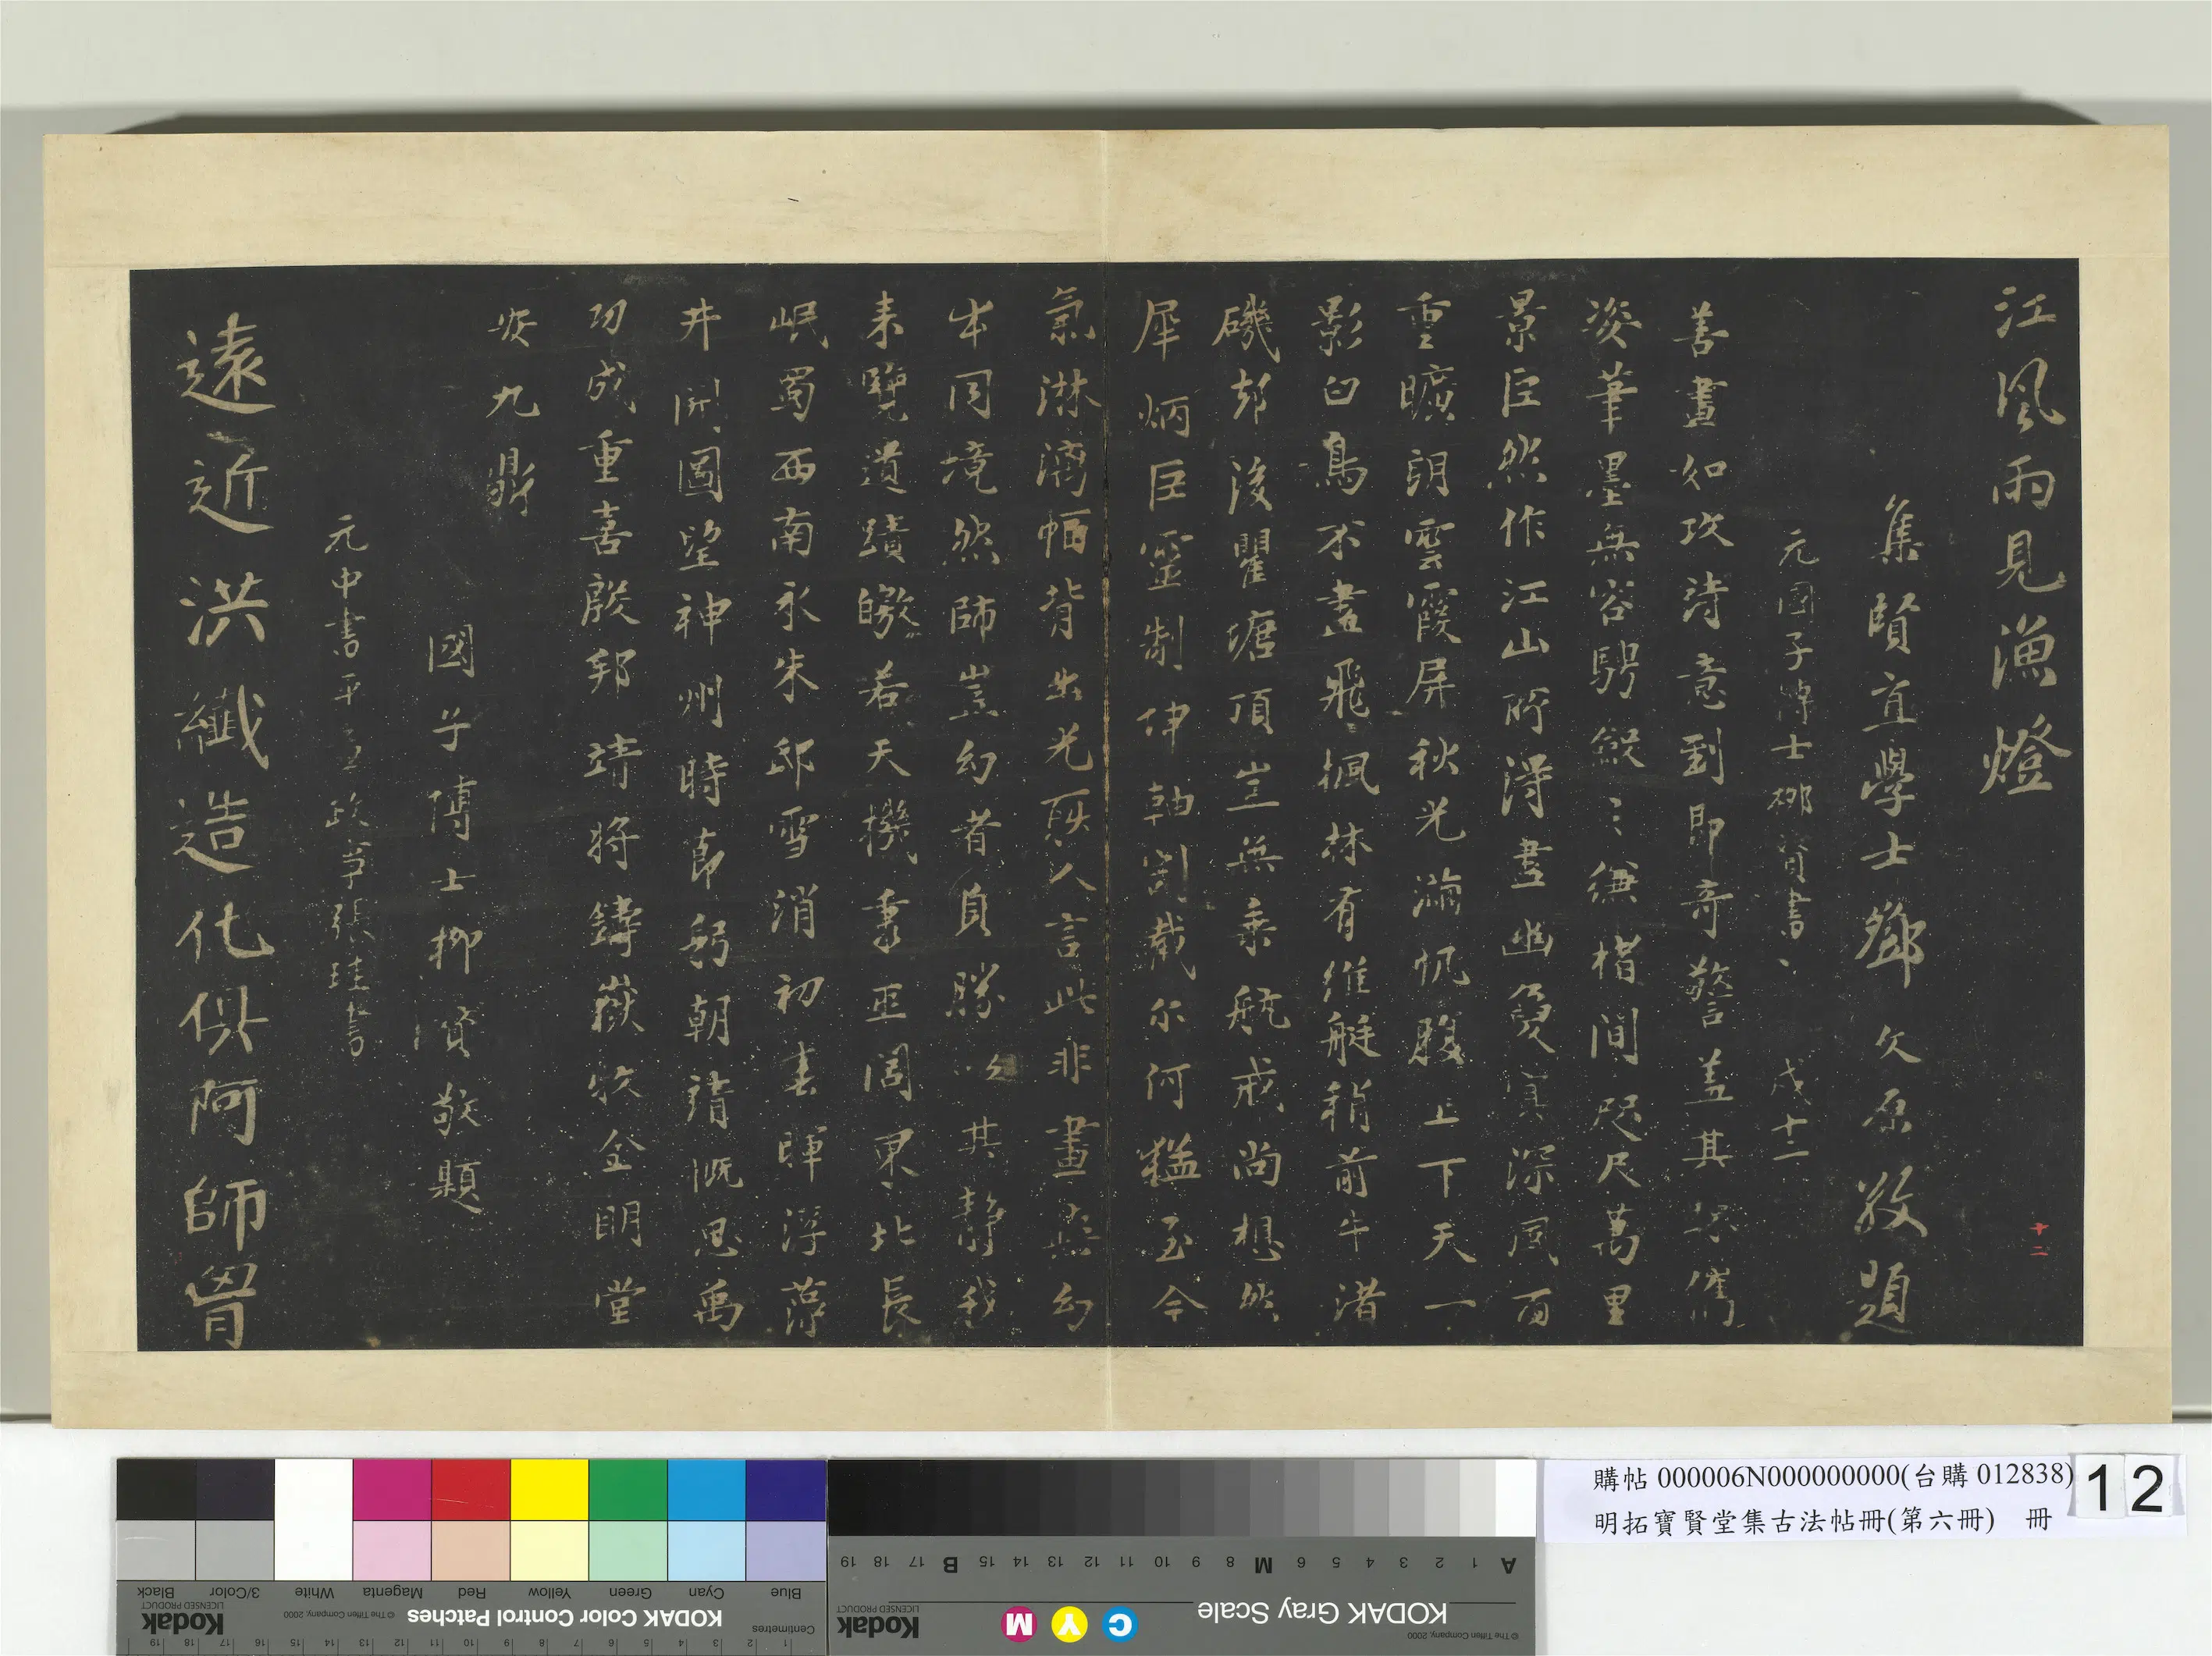 江風雨見漁燈
集賢直學士鄧文原敬題
元國子博士柳貫書
戊十二
十二
善畫如攻詩意到即奇警蓋其不儁
姿筆墨無容騁鮫〻縑楮間咫尺萬里
景巨然作江山所得盡幽夐冥深風雨
重曠朗雲霞屏秋光瀹帆腹上下天一
影白鳥不盡飛楓林有維艇稍前牛渚
磯却後瞿塘頂豈無乘航戒尚想然
犀炳巨靈制坤軸割截尔何猛至今
氣淋漓幅背出光耿人言此非畫無幻
本同境然師豈幻者負勝以其靜我
来覽遺蹟皦若天機秉巫閭東北長
岷蜀西南永朱邸雪消初春暉浮藻
井開圖望神州時節朝請慨思禹
功成重喜殷邦靖將鑄嶽牧金明堂
安九鼎
國子博士柳貫敬題
元中書平章政事張珪書
遠近洪纖造化俱阿師胷
購帖 000006N000000000(台購 012838)
明拓寶賢堂集古法帖冊(第六冊) 冊
12
KODAK Color Control Patches
Blue Cyan Green Yellow Red Magenta White 3/Color Black
Kodak
LICENSED PRODUCT
© The Tiffen Company, 2000
Centimetres
KODAK Gray Scale
C Y M
Kodak
LICENSED PRODUCT
© The Tiffen Company, 2000
A 1 2 3 4 5 6 M 8 9 10 11 12 13 14 15 B 17 18 19